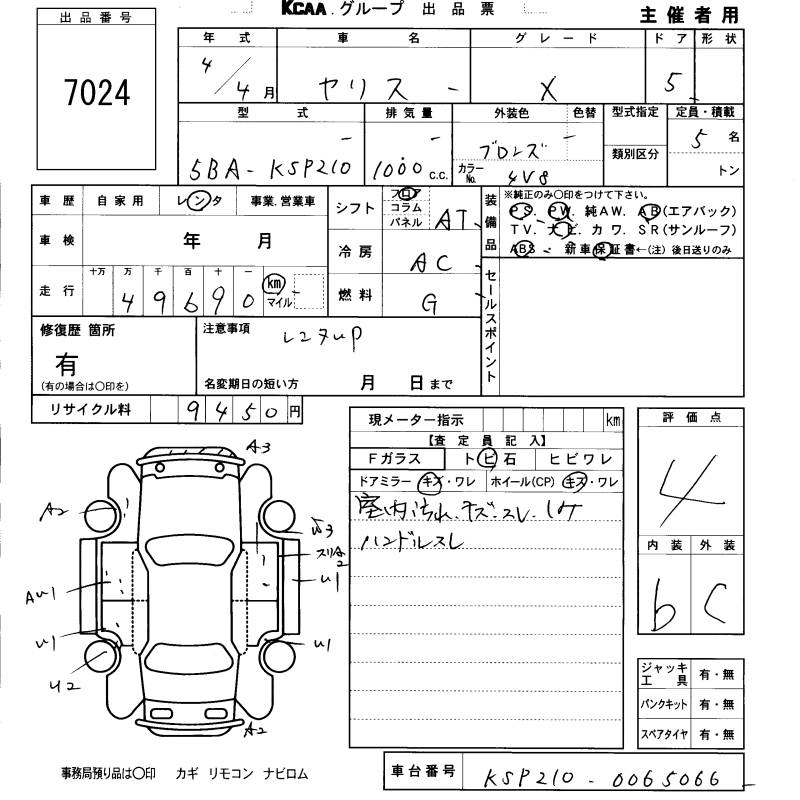 KCAA.グループ 出品票 主催者用
出品番号
7024
年式 車名 グレード ドア 形状
4/4月 ヤリス - X 5 -
型式 排気量 外装色 色替 型式指定 定員・積載
5BA - KSP210 - 1000 c.c. ブロンズ - 5名
カラーNo. 4V8 類別区分 トン
車歴 自家用 レンタ 事業.営業車
シフト フロア コラム パネル AT
装備品 ※純正のみ○印をつけて下さい。
PS. PW. 純AW. AB(エアバック)
TV. ナビ カワ. SR(サンルーフ)
ABS - 新車保証書←(注) 後日送りのみ
車検 年 月
冷房 AC
走行 十万 万 千 百 十 一
49690 km マイル -
燃料 G
セールスポイント
修復歴 箇所
有
(有の場合は○印を)
注意事項
レンタup
名変期日の短い方 月 日まで
リサイクル料 9450円
現メーター指示 km
【査定員記入】
Fガラス トビ石 ヒビワレ
ドアミラー キズ・ワレ ホイール(CP) キズ・ワレ
室内汚れ.キズ.スレ.コケ
ハンドルスレ
評価点
4
内装 外装
b C
A3
A2
3
スリキズ
2
AU1
U1
U1
U1
U2
A2
ジャッキ工具 有・無
パンクキット 有・無
スペアタイヤ 有・無
事務局預り品は○印 カギ リモコン ナビロム
車台番号 KSP210 - 0065066